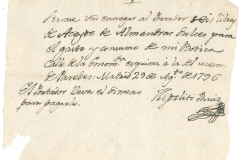 Sirvase Vm entregar al Portador Seis libras
de Azeyte de Almendras Dulces para
el gasto y consumo de mi Botica
Calle de la Encomª esquina à la
de Paredes. Madrid 29 de Agto de 1796
El Portador lleva el dinero
para pagarlo. Hipolito Ruiz